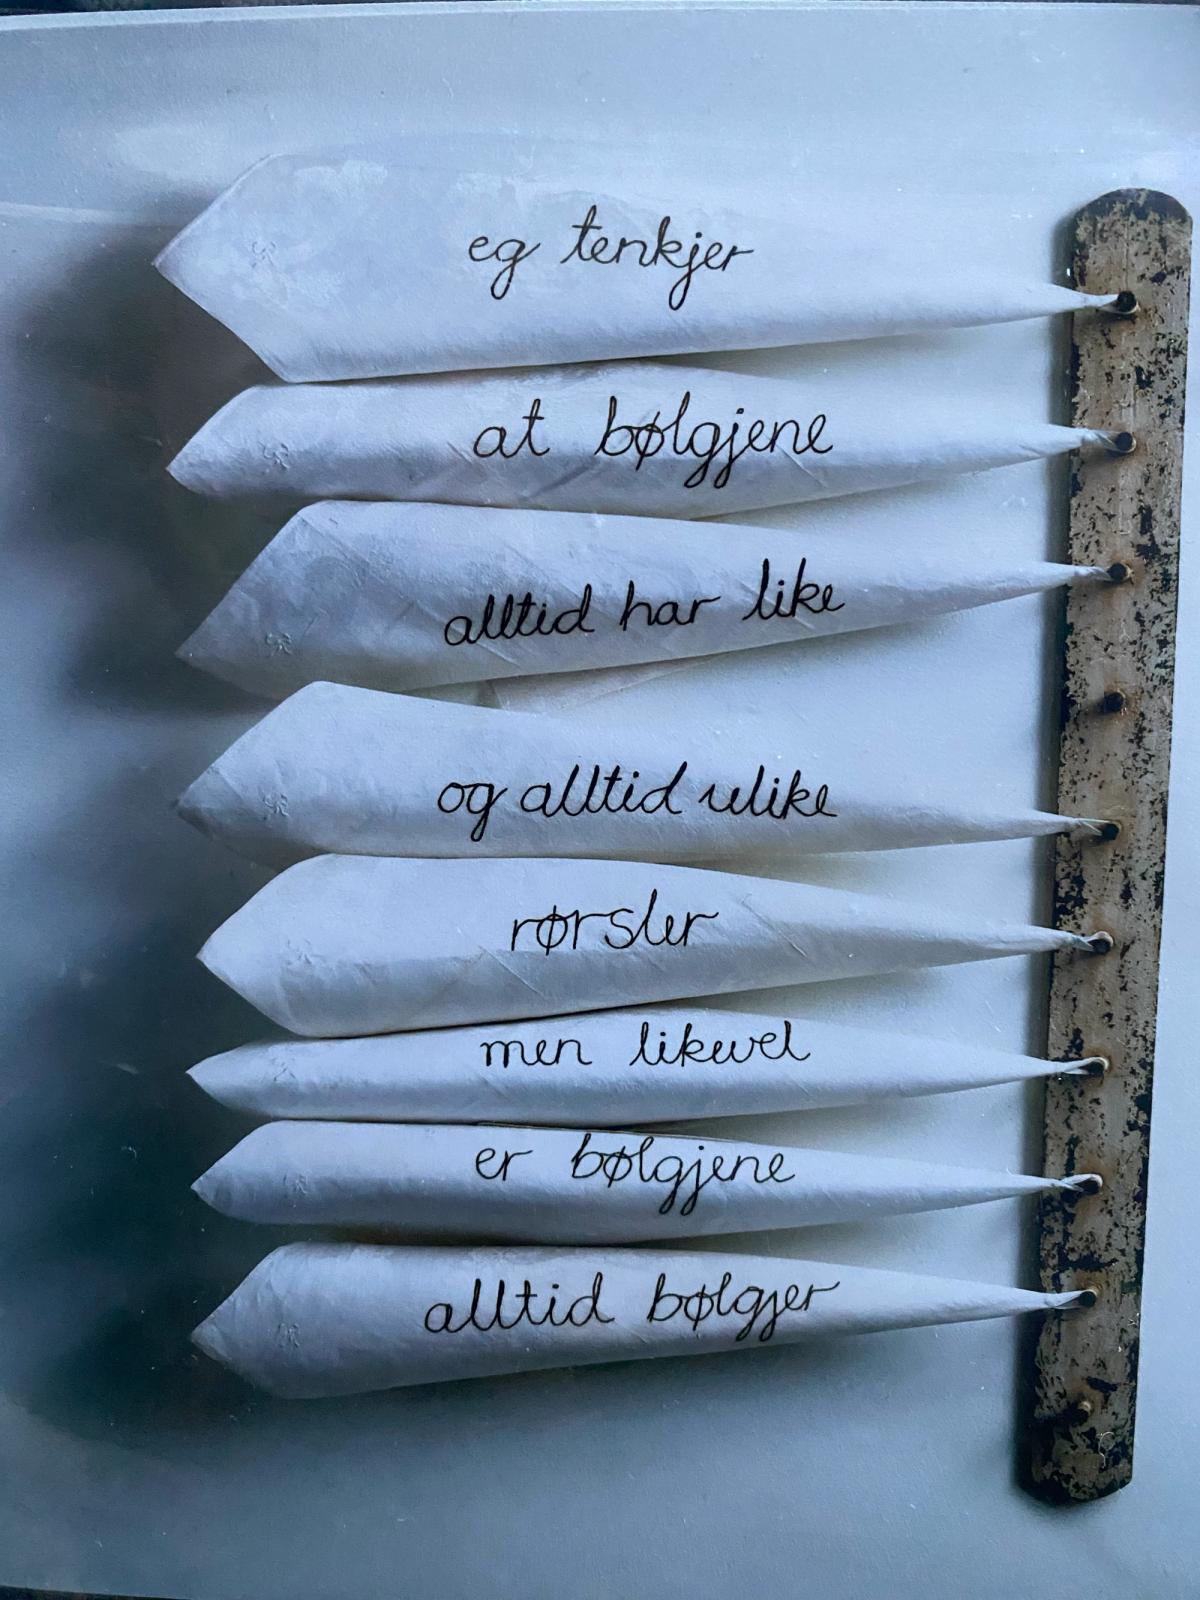 eg tenkjer
at bølgjene
alltid har like
og alltid ulike
rørsler
men likevel
er bølgjene
alltid bølgjer